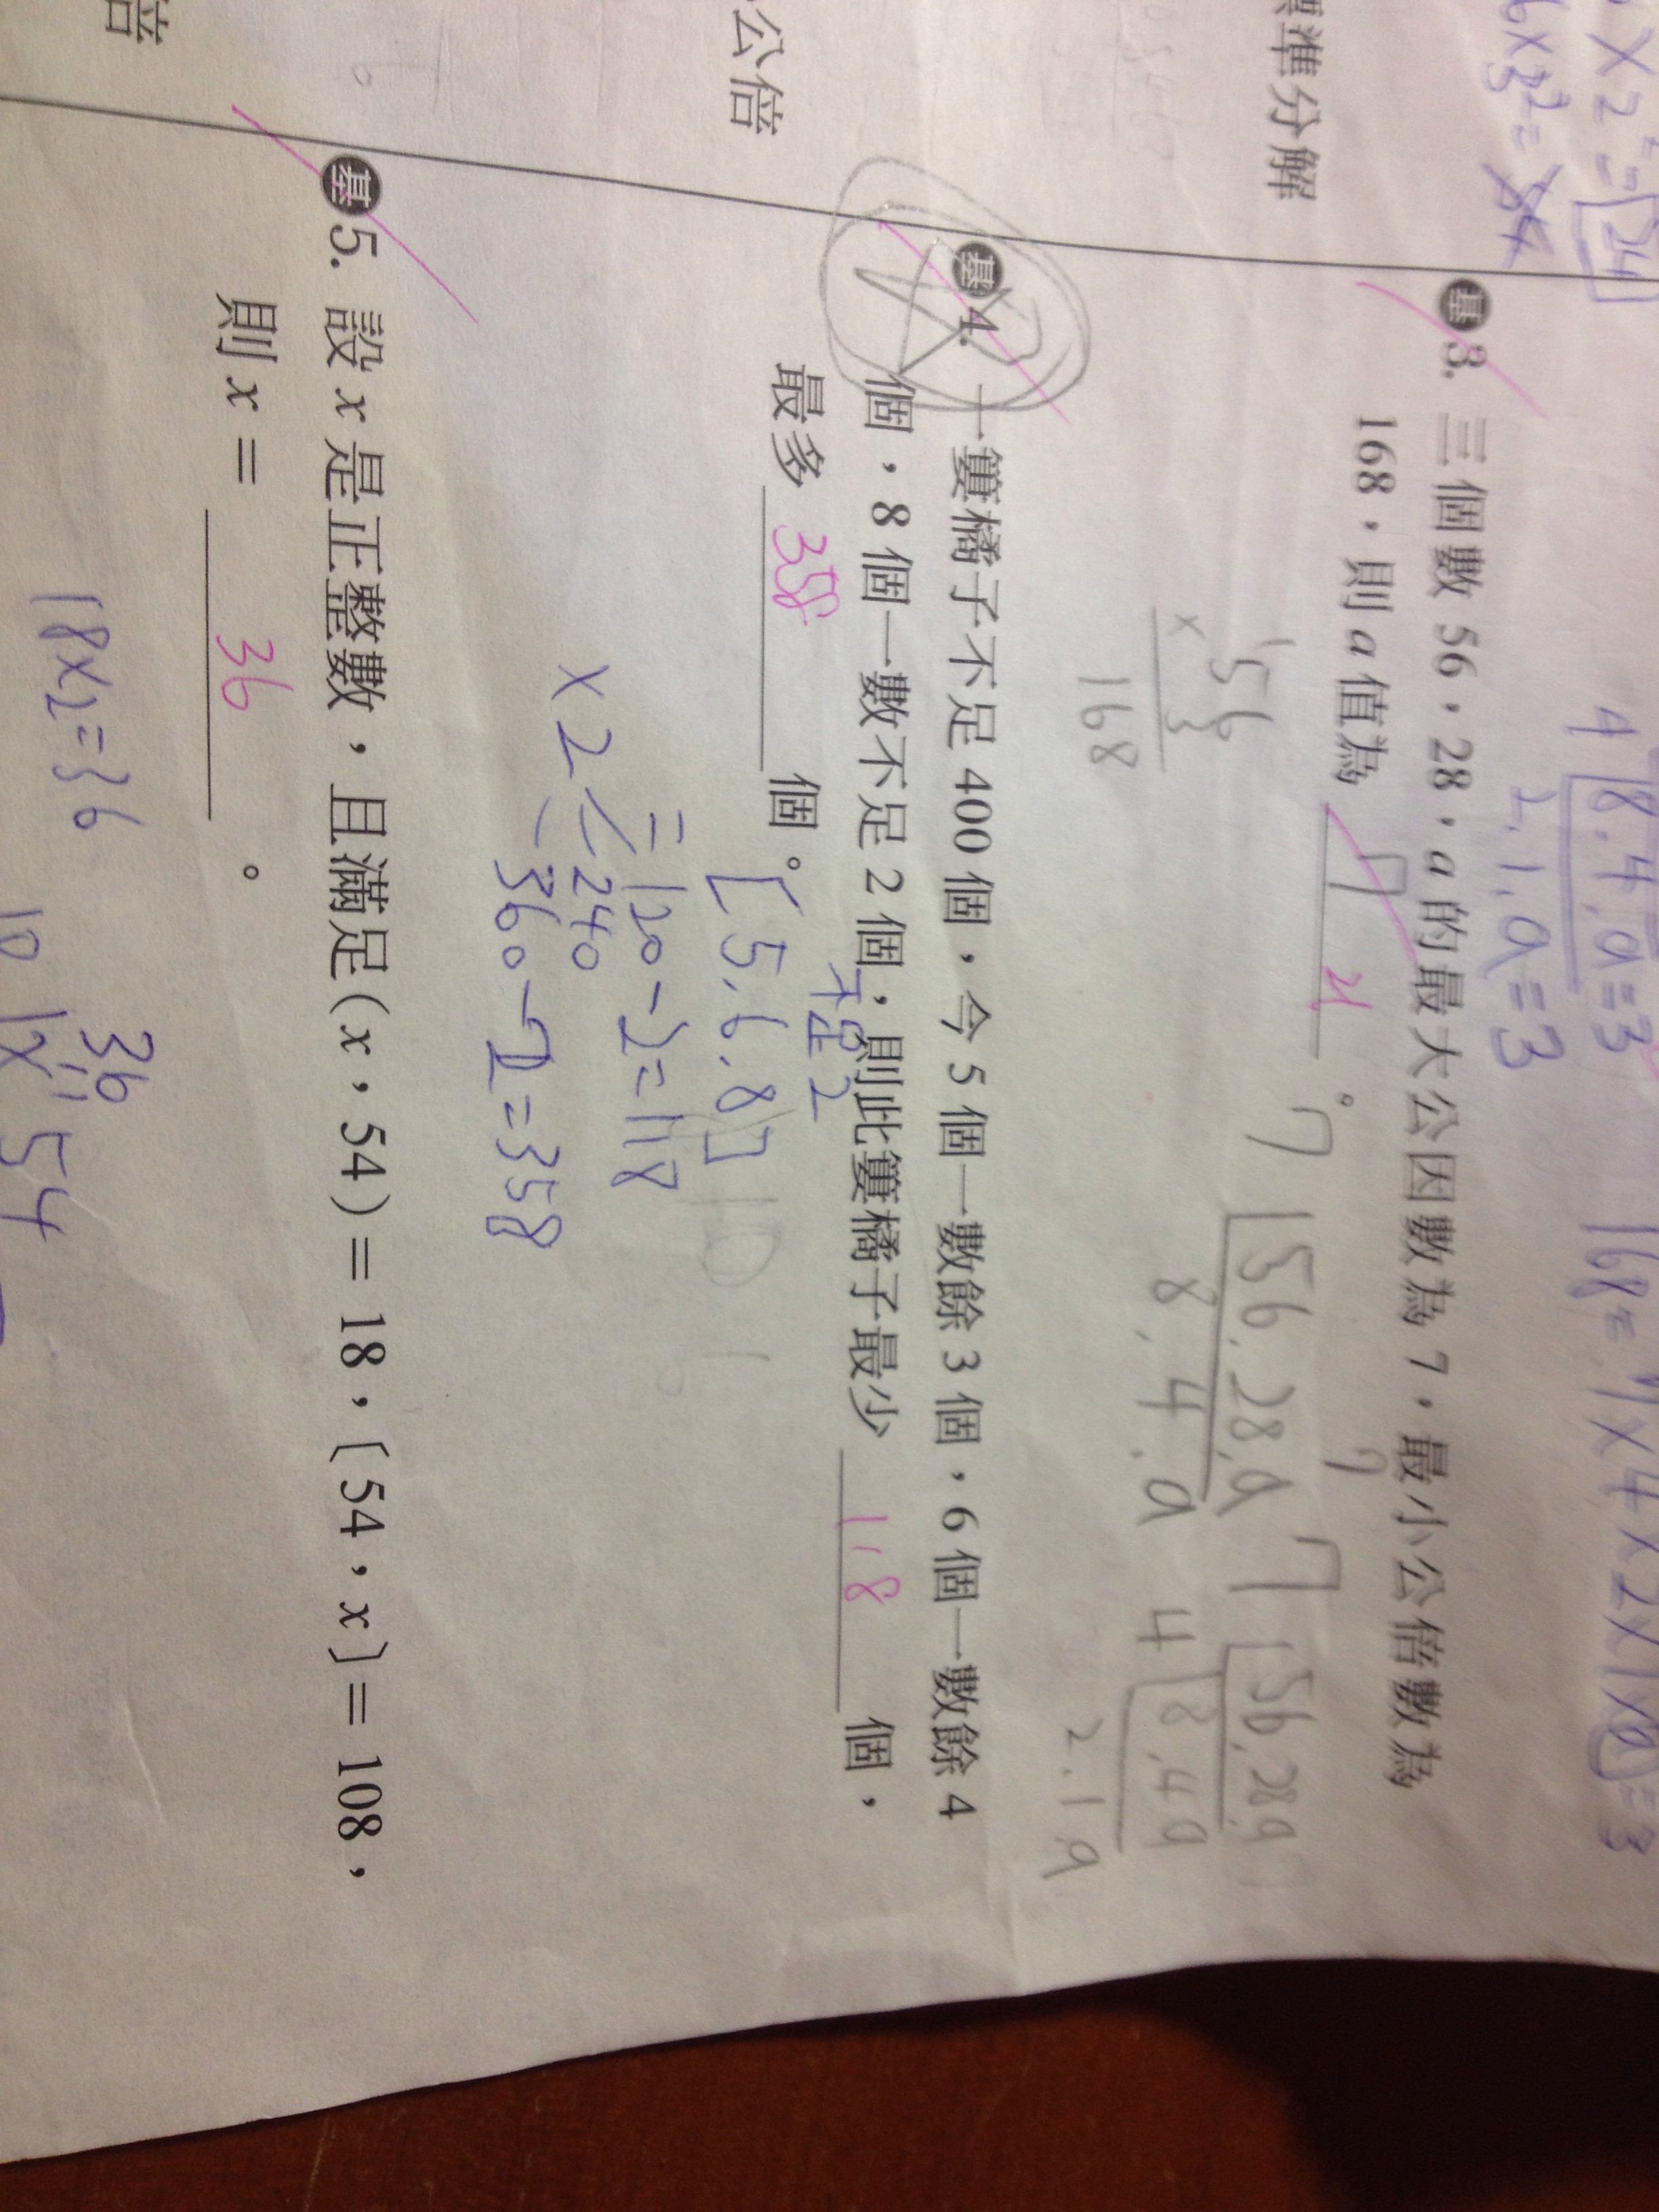 × 2 = 24
6×3² = 54
標準分解
公倍
倍
4 8, 4, a = 3
2, 1, a = 3
168 = 7×4×2×1×a = 3
基 3. 三個數 56,28,a 的最大公因數為 7,最小公倍數為
168,則 a 值為 7 21 。
56
× 3
168
7 56, 28, a
8, 4, a
7 56, 28, a
4 8, 4, a
2, 1, a
基 4. 一簍橘子不足 400 個,今 5 個一數餘 3 個,6 個一數餘 4
個,8 個一數不足 2 個,則此簍橘子最少 118 個,
最多 358 個。
不足2
[5, 6, 8]
= 120 - 2 = 118
×2 = 240
360 - 2 = 358
基 5. 設 x 是正整數,且滿足(x,54)= 18,〔54,x〕= 108,
則 x = 36 。
18×2=36
36
18 x, 54